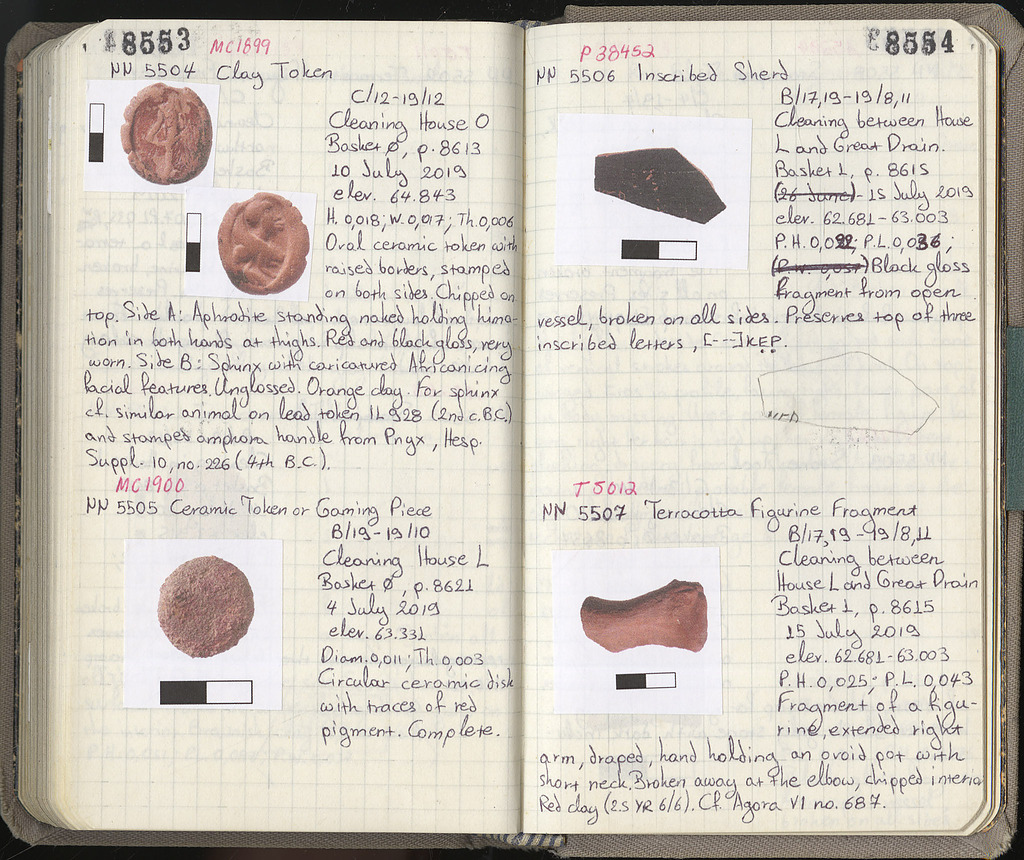 8553
MC1899
NN 5504 Clay Token
C/12-19/12
Cleaning House O
Basket Ø, p. 8613
10 July 2019
elev. 64.843
H. 0,018; W. 0,017; Th. 0,006
Oval ceramic token with
raised borders, stamped
on both sides. Chipped on
top. Side A: Aphrodite standing naked holding hima-
tion in both hands at thighs. Red and black gloss, very
worn. Side B: Sphinx with caricatured Africanicing
facial features. Unglossed. Orange clay. For sphinx
cf. similar animal on lead token IL 928 (2nd c. B.C.)
and stamped amphora handle from Pnyx, Hesp.
Suppl. 10, no. 226 (4th B.C.).
MC1900
NN 5505 Ceramic Token or Gaming Piece
B/19-19/10
Cleaning House L
Basket Ø, p. 8621
4 July 2019
elev. 63.331
Diam. 0,011; Th. 0,003
Circular ceramic disk
with traces of red
pigment. Complete.
8554
P 38452
NN 5506 Inscribed Sherd
B/17,19-19/8,11
Cleaning between House
L and Great Drain.
Basket 1, p. 8615
(26 June) 15 July 2019
elev. 62.681-63.003
P.H. 0,022; P.L. 0,036;
Black gloss
fragment from open
vessel, broken on all sides. Preserves top of three
inscribed letters, [---]ΚΕΡ.
T 5012
NN 5507 Terracotta Figurine Fragment
B/17,19-19/8,11
Cleaning between
House L and Great Drain
Basket 1, p. 8615
15 July 2019
elev. 62.681-63.003
P.H. 0,025; P.L. 0,043
Fragment of a figu-
rine, extended right
arm, draped, hand holding an ovoid pot with
short neck. Broken away at the elbow, chipped interior
Red clay (2.5 YR 6/6). Cf. Agora VI no. 687.